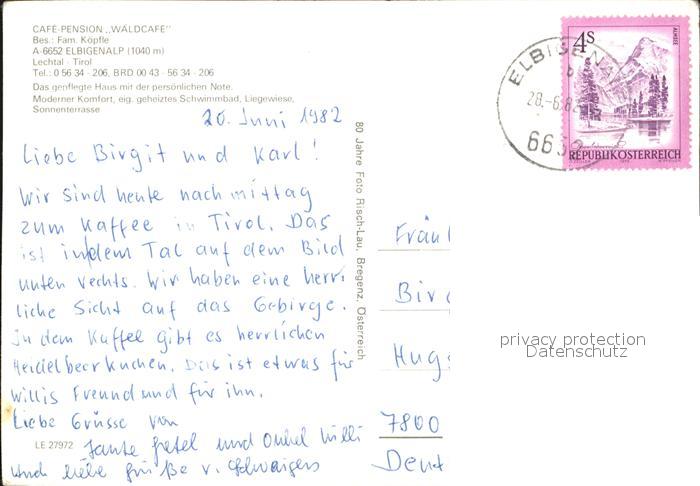 CAFÉ-PENSION „WALDCAFE"
Bes.: Fam. Köpfle
A-6652 ELBIGENALP (1040 m)
Lechtal · Tirol
Tel.: 0 56 34 - 206, BRD 00 43 - 56 34 - 206
Das gepflegte Haus mit der persönlichen Note.
Moderner Komfort, eig. geheiztes Schwimmbad, Liegewiese,
Sonnenterrasse
20. Juni 1982
Liebe Birgit und Karl!
Wir sind heute nachmittag
zum Kaffee in Tirol. Das
ist in dem Tal auf dem Bild
unten rechts. Wir haben eine herr-
liche Sicht auf das Gebirge.
In dem Kaffee gibt es herrlichen
Heidelbeerkuchen. Das ist etwas für
Willis Freund und für ihn.
Liebe Grüsse von
Tante Gretel und Onkel Willi
und liebe Grüße v.
LE 27972
80 Jahre Foto Risch-Lau, Bregenz, Österreich
4S
ALMSEE
REPUBLIK ÖSTERREICH
ELBIGENA
6652
Fräul
Birg
Hugs
7800
Deut
privacy protection
Datenschutz